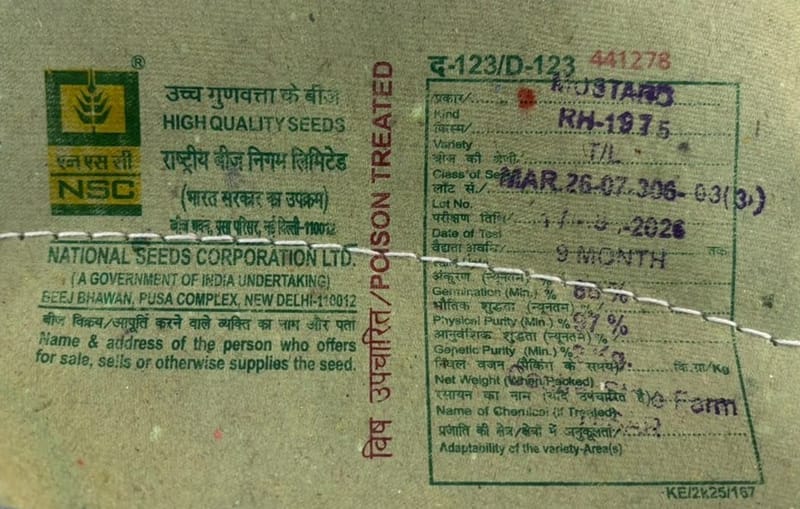 ®
एन एस सी
NSC
उच्च गुणवत्ता के बीज
HIGH QUALITY SEEDS
राष्ट्रीय बीज निगम लिमिटेड
(भारत सरकार का उपक्रम)
बीज भवन, पूसा परिसर, नई दिल्ली-110012
NATIONAL SEEDS CORPORATION LTD.
(A GOVERNMENT OF INDIA UNDERTAKING)
BEEJ BHAWAN, PUSA COMPLEX, NEW DELHI-110012
बीज विक्रय/आपूर्ति करने वाले व्यक्ति का नाम और पता
Name & address of the person who offers
for sale, sells or otherwise supplies the seed.
विष उपचारित/POISON TREATED
द-123/D-123 441278
प्रकार/ MUSTARD
Kind
किस्म/ RH-1975
Variety
बीज की श्रेणी/ T/L
Class of
लॉट सं./ MAR.26-07-306-03(3)
Lot No.
परीक्षण तिथि/ -2026
Date of Test
वैद्यता अवधि/ 9 MONTH तक
अंकुरण (न्यूनतम)
Germination (Min.) %
भौतिक शुद्धता (न्यूनतम)
Physical Purity (Min.) % 97 %
आनुवंशिक शुद्धता (न्यूनतम)
Genetic Purity (Min.) % Kg.
वजन (पैकिंग के समय) कि.ग्रा/Kg
Net Weight (When Packed)
रसायन का नाम (यदि उपचारित है) Farm
Name of Chemical (If Treated)
प्रजाति की क्षेत्र/क्षेत्रों में अनुकूलता/
Adaptability of the variety-Area(s)
KE/2k25/167